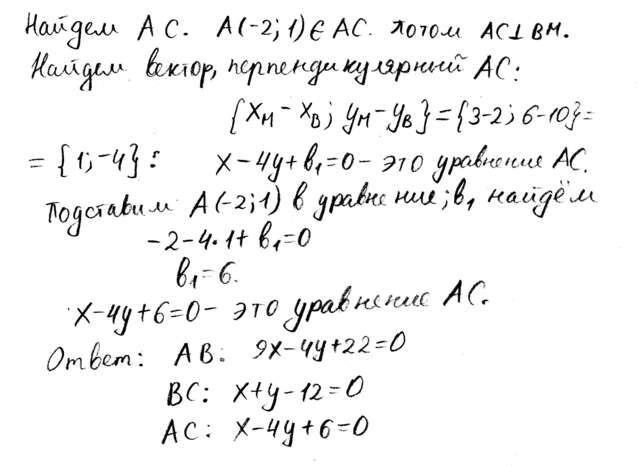 Найдем AC. A(-2; 1) ∈ AC. потом AC⊥BM.
Найдем вектор, перпендикулярный AC:
{x_M - x_B; y_M - y_B} = {3-2; 6-10} =
= {1; -4} : x - 4y + b₁ = 0 - это уравнение AC.
Подставим A(-2; 1) в уравнение; b₁ найдём
-2-4·1+b₁=0
b₁=6.
x-4y+6=0 - это уравнение AC.
Ответ: AB: 9x-4y+22=0
BC: x+y-12=0
AC: x-4y+6=0